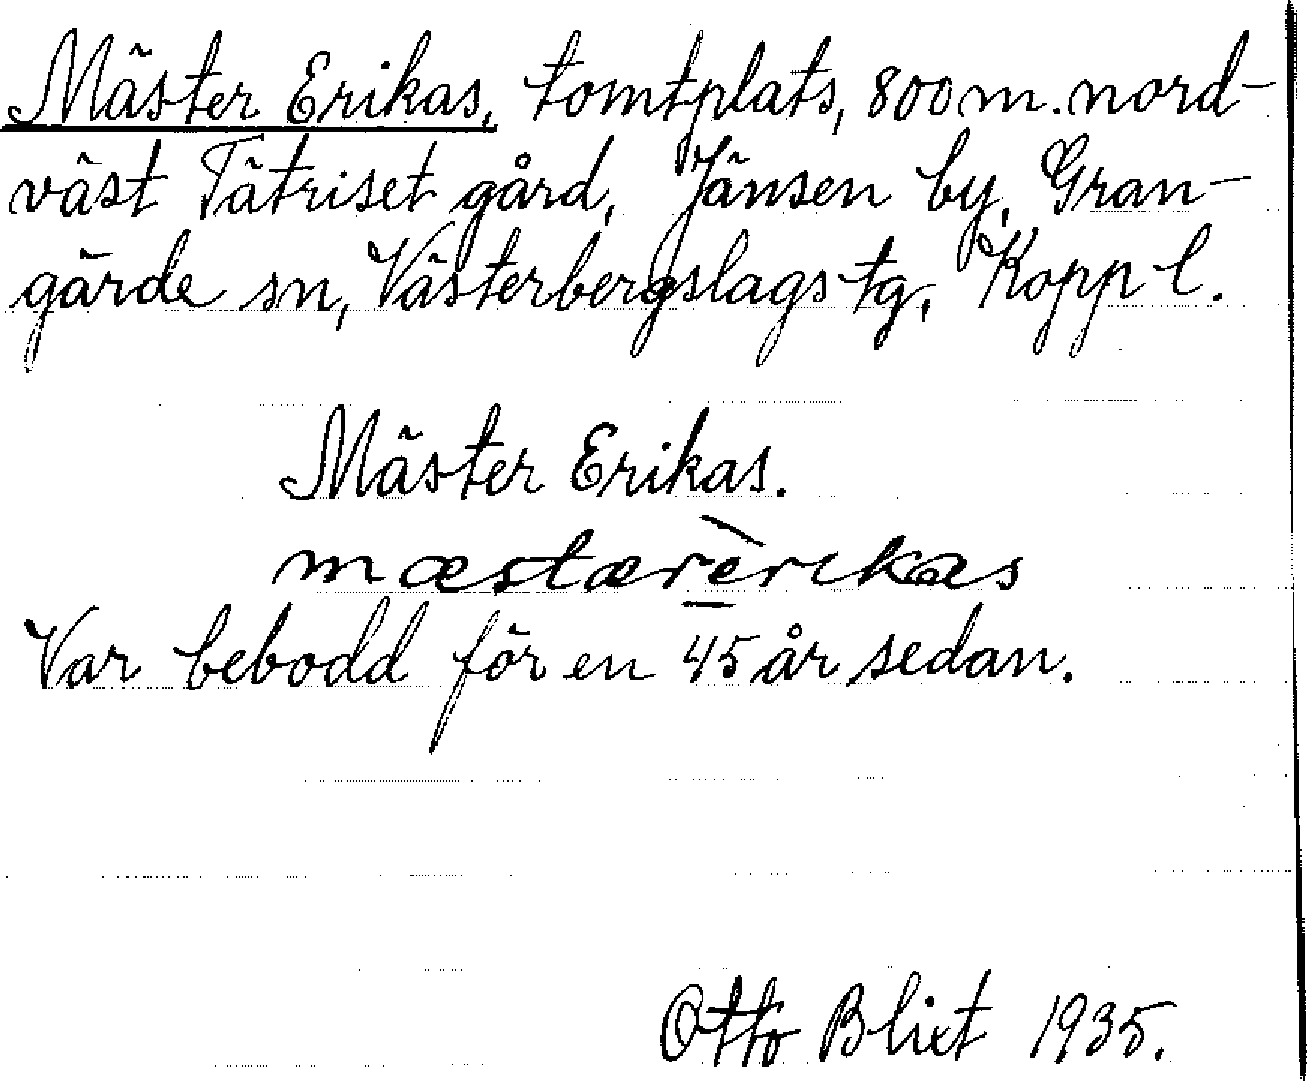 Mäster Erikas, tomtplats, 800 m. nord-
väst Tätriset gård, Jänsen by, Gran-
gärde sn, Västerbergslags tg, Kopp l.
Mäster Erikas.
mæstærèrikas
Var bebodd för en 45 år sedan.
Otto Blixt 1935.